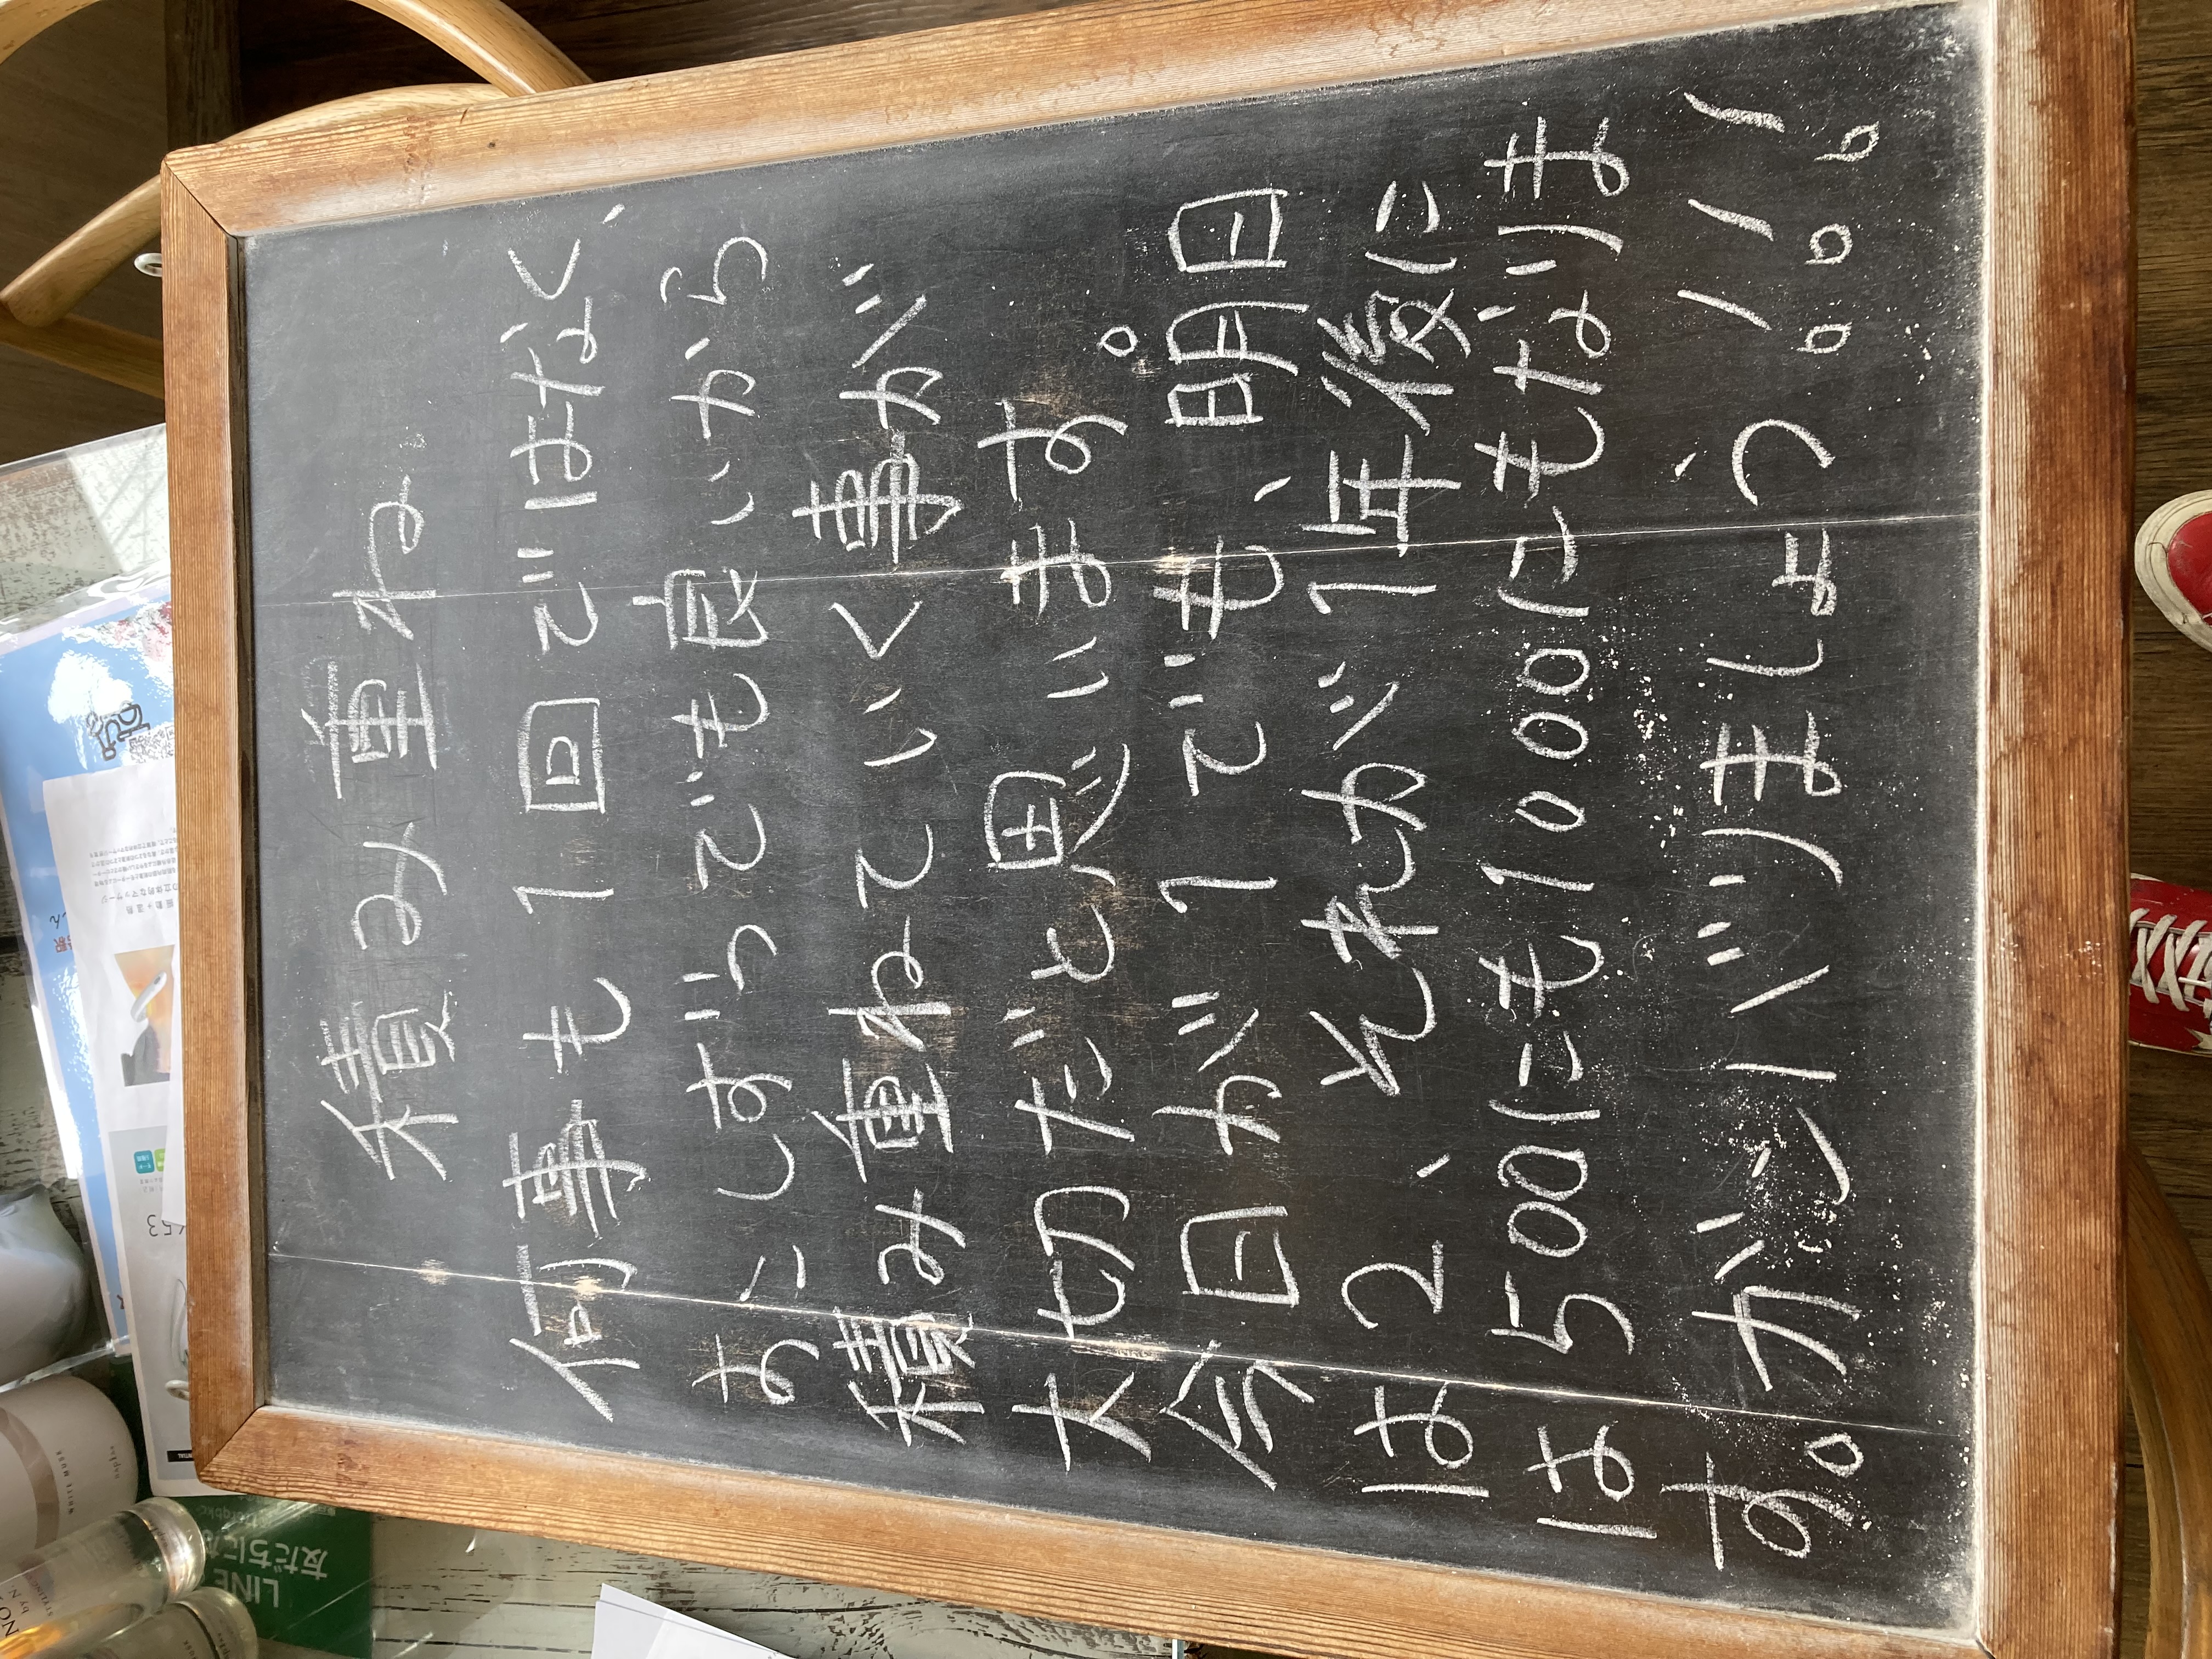 積み重ね
何事も1回ではなく、
すこしずつでも良いから
積み重ねていく事が
大切だと思います。
今日が1でも、明日
は2、それが1年後に
は500にも1000にもなりま
す。ガンバリましょう!!!
LINE
友だちに